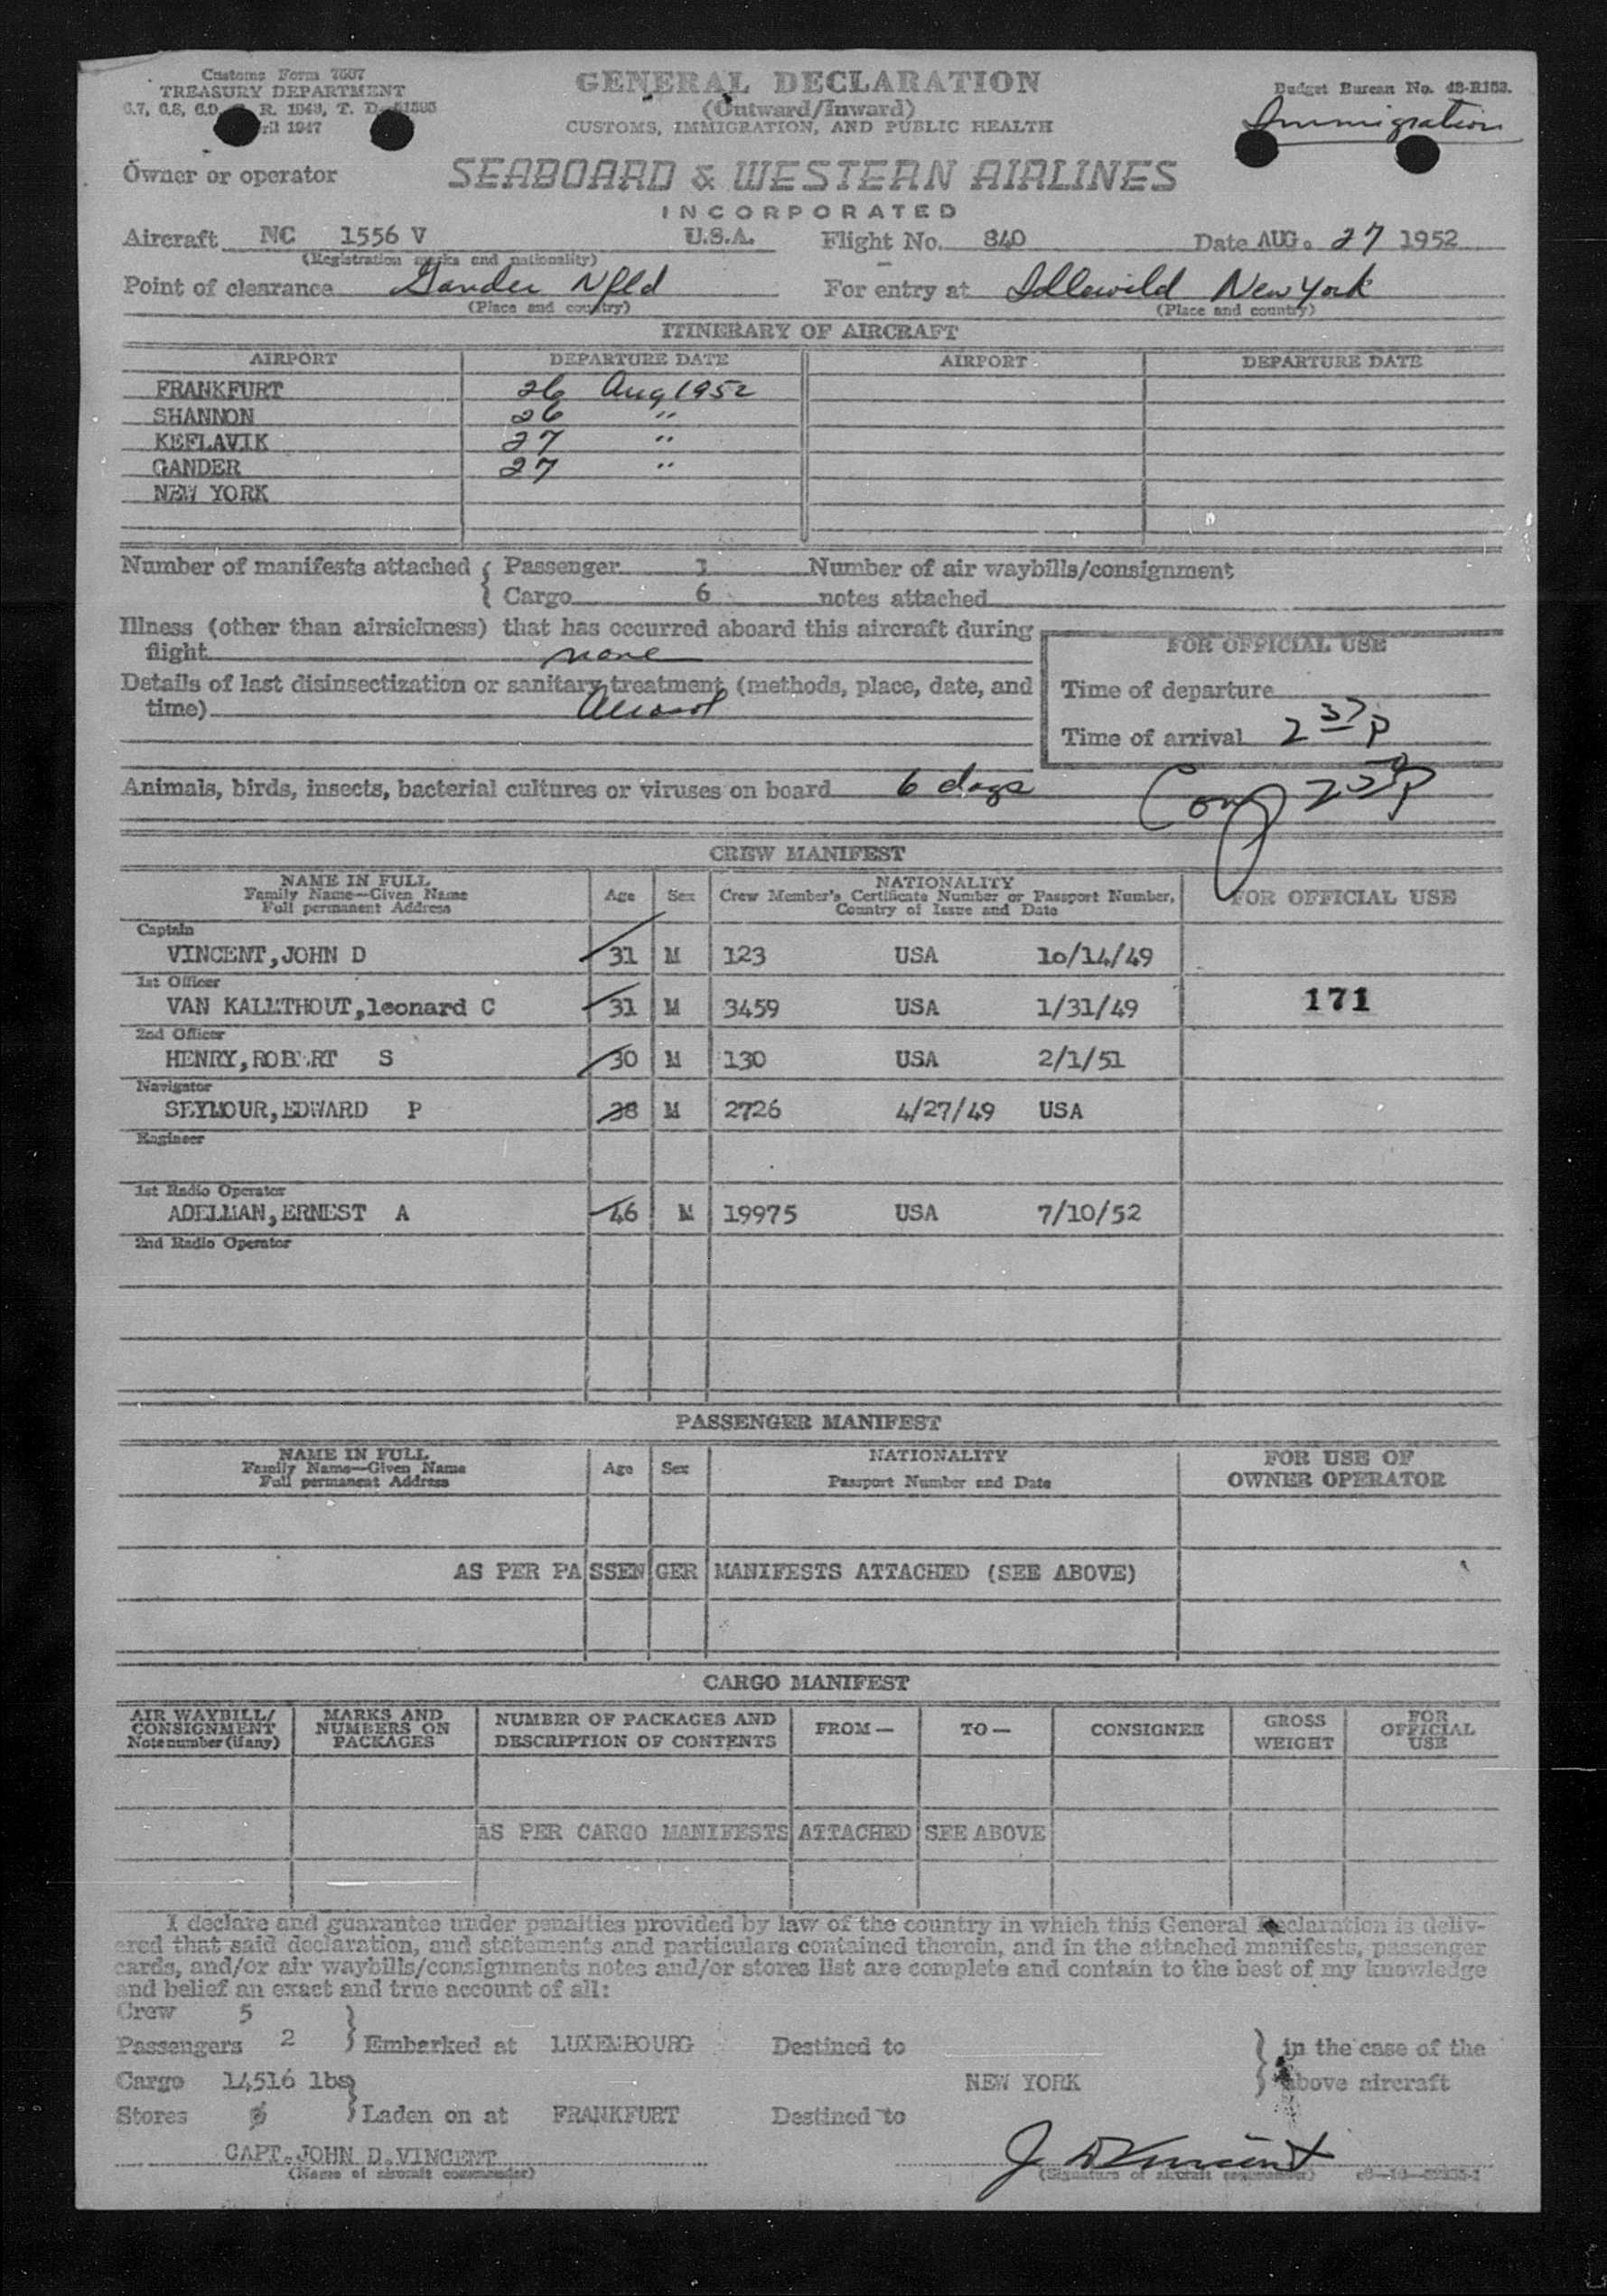 Customs Form 7507
TREASURY DEPARTMENT
6.7, 6.8, 6.9, R. 1943, T. D.
April 1947
GENERAL DECLARATION
(Outward/Inward)
CUSTOMS, IMMIGRATION, AND PUBLIC HEALTH
Budget Bureau No. 48-R153.
Immigration
Owner or operator SEABOARD & WESTERN AIRLINES
INCORPORATED
Aircraft NC 1556 V U.S.A. Flight No. 840 Date AUG. 27 1952
(Registration marks and nationality)
Point of clearance Gander Nfld For entry at Idlewild New York
(Place and country) (Place and country)
ITINERARY OF AIRCRAFT
AIRPORT DEPARTURE DATE AIRPORT DEPARTURE DATE
FRANKFURT 26 Aug 1952
SHANNON 26 "
KEFLAVIK 27 "
GANDER 27 "
NEW YORK
Number of manifests attached { Passenger 1 Number of air waybills/consignment
{ Cargo 6 notes attached
Illness (other than airsickness) that has occurred aboard this aircraft during
flight none
FOR OFFICIAL USE
Details of last disinsectization or sanitary treatment (methods, place, date, and
time) Aerosol
Time of departure
Time of arrival 2 37 P
Animals, birds, insects, bacterial cultures or viruses on board 6 dogs
CREW MANIFEST
NAME IN FULL
Family Name—Given Name
Full permanent Address
Age Sex
NATIONALITY
Crew Member's Certificate Number or Passport Number,
Country of Issue and Date
FOR OFFICIAL USE
Captain
VINCENT, JOHN D 31 M 123 USA 10/14/49
1st Officer
VAN KALETHOUT, leonard C 31 M 3459 USA 1/31/49 171
2nd Officer
HENRY, ROBERT S 30 M 130 USA 2/1/51
Navigator
SEYMOUR, EDWARD P 38 M 2726 4/27/49 USA
Engineer
1st Radio Operator
ADELMAN, ERNEST A 46 M 19975 USA 7/10/52
2nd Radio Operator
PASSENGER MANIFEST
NAME IN FULL
Family Name—Given Name
Full permanent Address
Age Sex
NATIONALITY
Passport Number and Date
FOR USE OF
OWNER OPERATOR
AS PER PASSENGER MANIFESTS ATTACHED (SEE ABOVE)
CARGO MANIFEST
AIR WAYBILL/
CONSIGNMENT
Note number (if any)
MARKS AND
NUMBERS ON
PACKAGES
NUMBER OF PACKAGES AND
DESCRIPTION OF CONTENTS
FROM— TO— CONSIGNEE
GROSS
WEIGHT
FOR
OFFICIAL
USE
AS PER CARGO MANIFESTS ATTACHED SEE ABOVE
I declare and guarantee under penalties provided by law of the country in which this General Declaration is deliv-
ered that said declaration, and statements and particulars contained therein, and in the attached manifests, passenger
cards, and/or air waybills/consignments notes and/or stores list are complete and contain to the best of my knowledge
and belief an exact and true account of all:
Crew 5
Passengers 2 } Embarked at LUXEMBOURG Destined to } in the case of the
Cargo 14516 lbs NEW YORK above aircraft
Stores Ø } Laden on at FRANKFURT Destined to
CAPT. JOHN D. VINCENT J D Vincent
(Name of aircraft commander) (Signature of aircraft commander)